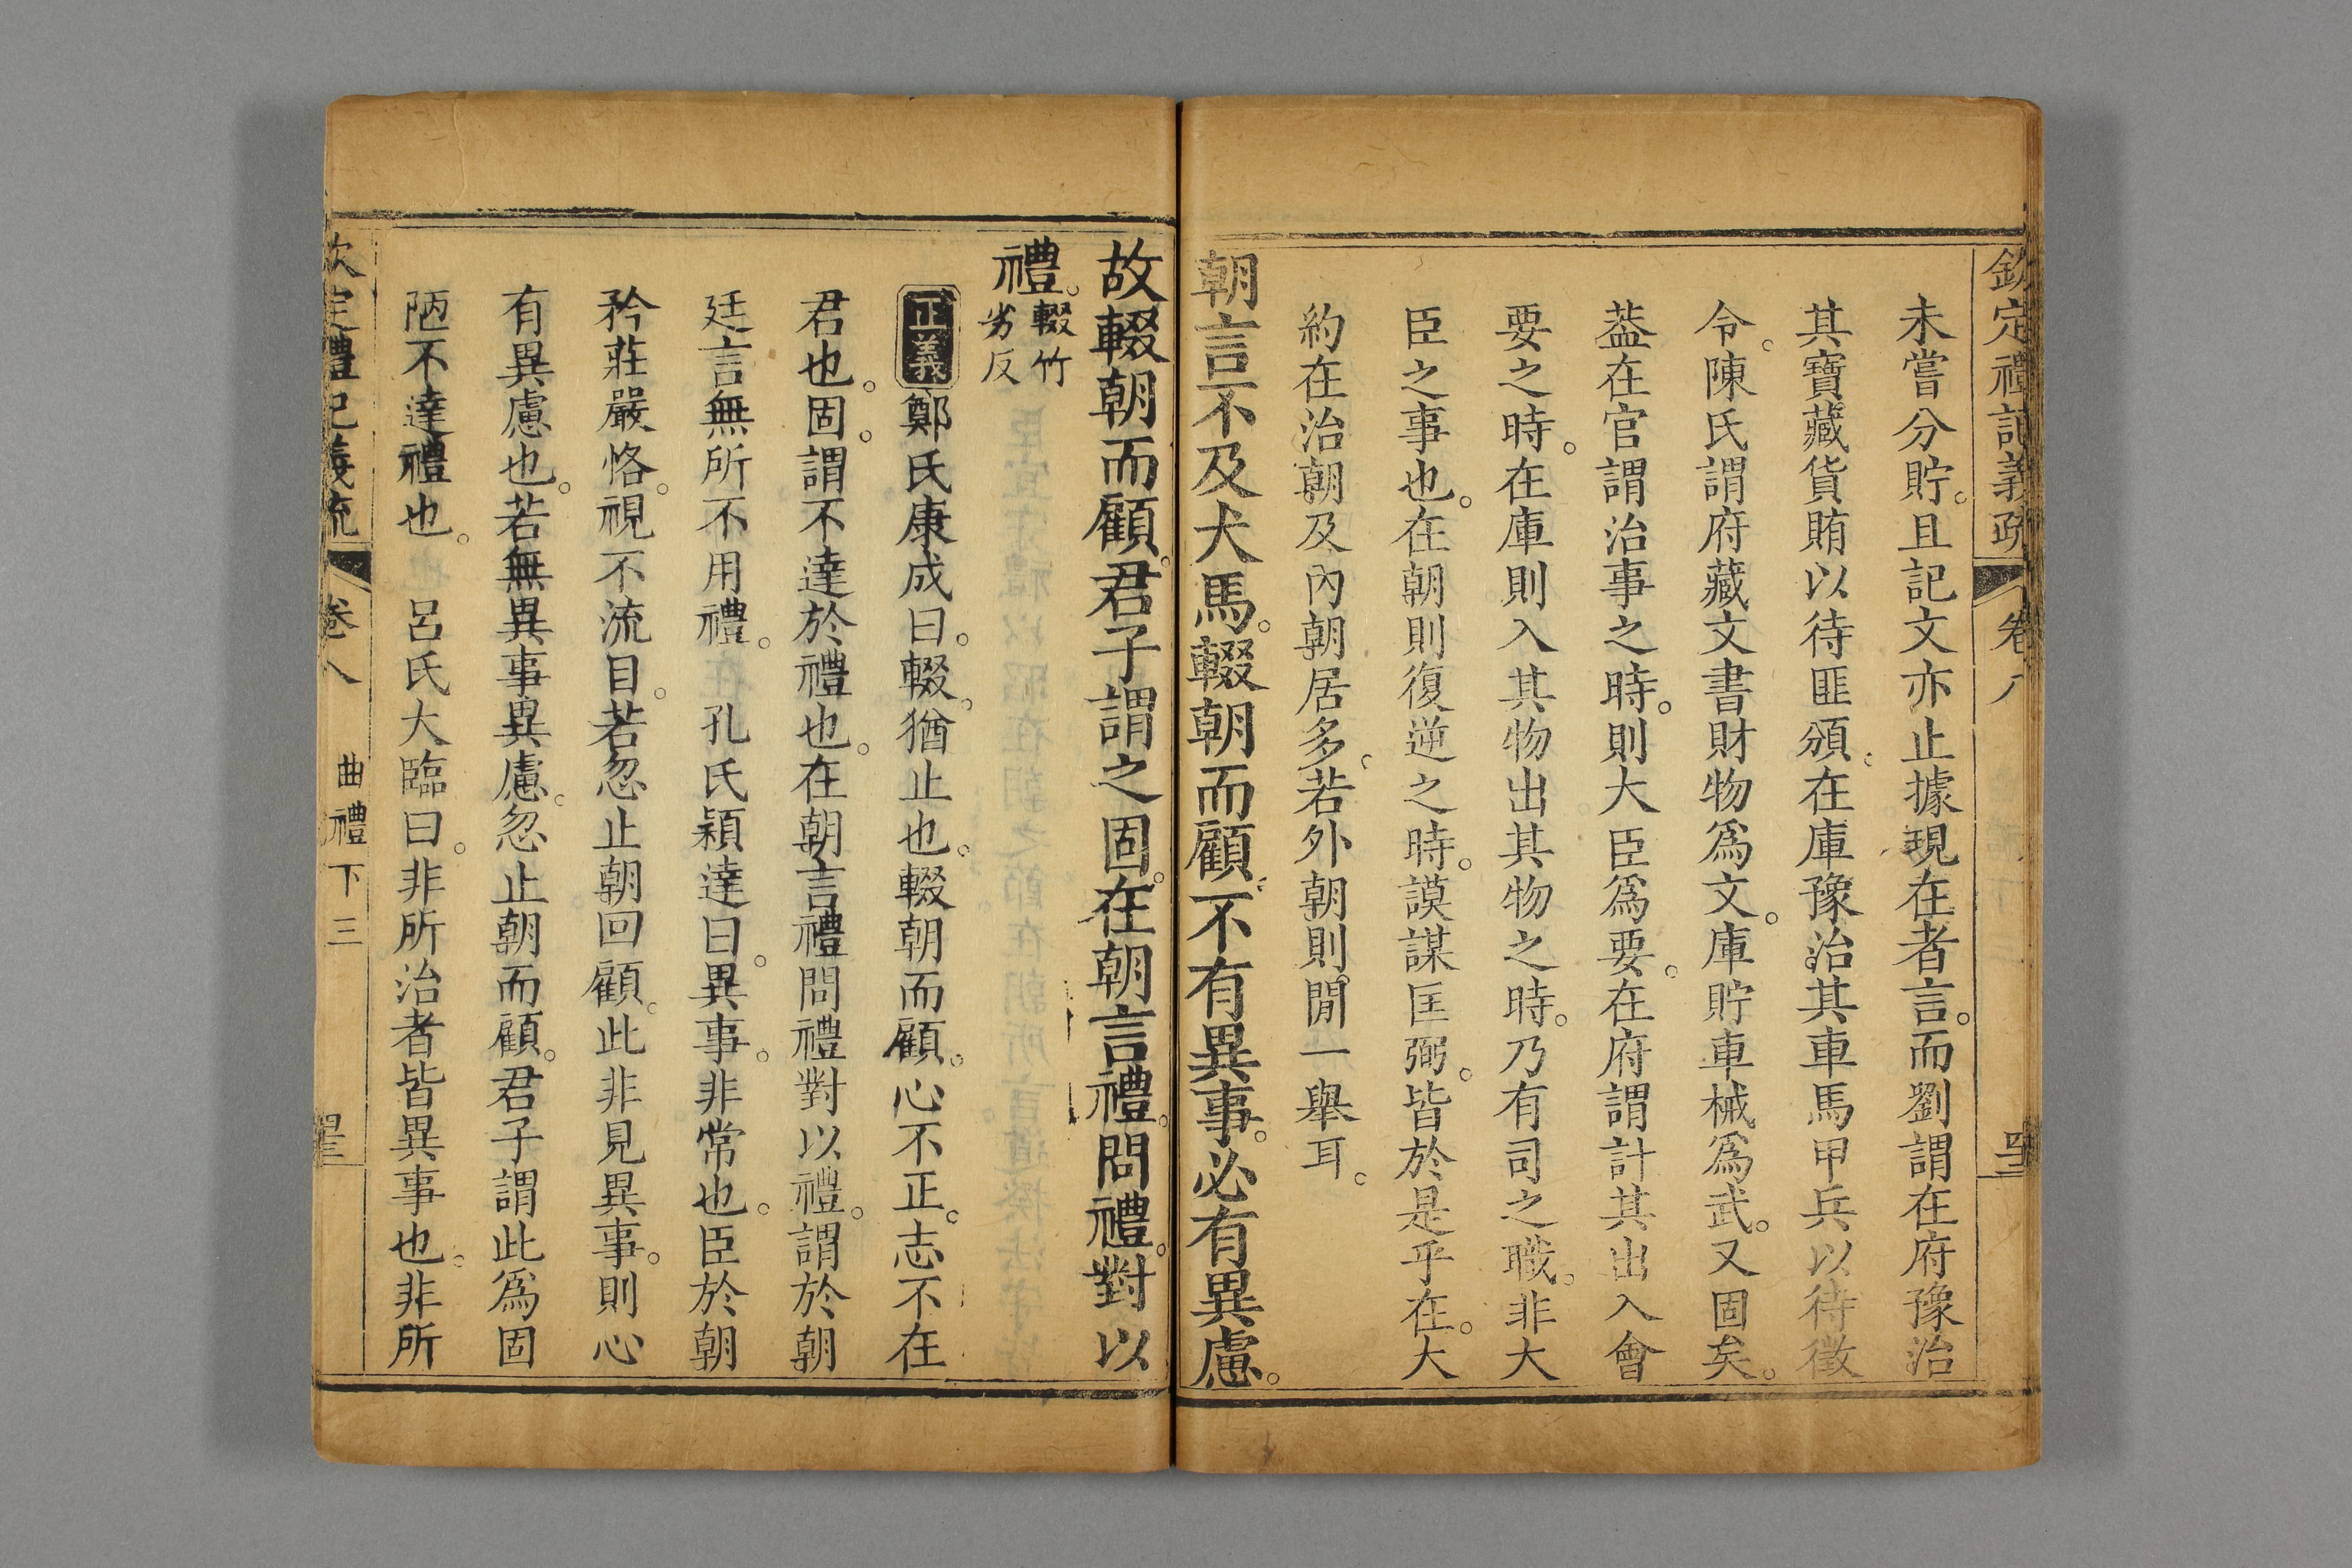 欽定禮記義疏 卷八
未嘗分貯。且記文亦止據現在者言。而劉謂在府豫治
其寶藏貨賄以待匪頒。在庫豫治其車馬甲兵以待徵
令。陳氏謂府藏文書財物爲文。庫貯車械爲武。又固矣。
葢在官謂治事之時。則大臣爲要。在府謂計其出入會
要之時。在庫則入其物出其物之時。乃有司之職。非大
臣之事也。在朝則復逆之時。謨謀匡弼。皆於是乎在。大
約在治朝及內朝居多。若外朝則閒一舉耳。
朝言不及犬馬。輟朝而顧。不有異事。必有異慮。
故輟朝而顧。君子謂之固。在朝言禮。問禮。對以
禮。輟竹劣反
正義鄭氏康成曰。輟。猶止也。輟朝而顧。心不正。志不在
君也。固。謂不達於禮也。在朝言禮問禮對以禮。謂於朝
廷言無所不用禮。 孔氏穎達曰。異事。非常也。臣於朝
矜莊嚴恪。視不流目。若忽止朝回顧。此非見異事。則心
有異慮也。若無異事異慮。忽止朝而顧。君子謂此爲固
陋不達禮也。 呂氏大臨曰。非所治者皆異事也。非所
欽定禮記義疏 卷八 曲禮下三